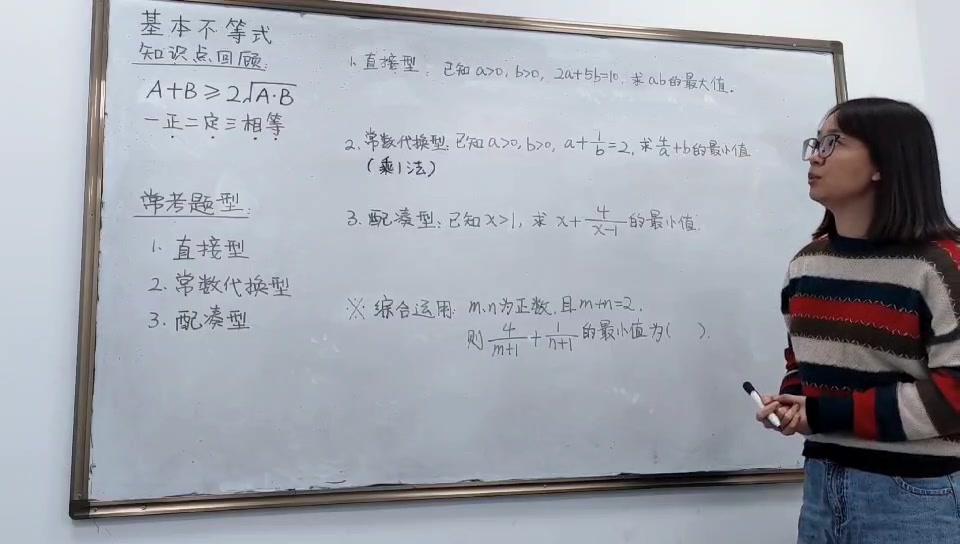 基本不等式
知识点回顾:
A+B≥2√A·B
一正二定三相等
常考题型:
1. 直接型
2. 常数代换型
3. 配凑型
1. 直接型: 已知a>0, b>0, 2a+5b=10, 求ab的最大值.
2. 常数代换型: 已知a>0, b>0, a+1/b=2, 求4/a+b的最小值
(乘1法)
3. 配凑型: 已知x>1, 求 x+4/(x-1)的最小值.
※ 综合运用: m、n为正数, 且m+n=2,
则4/(m+1)+1/(n+1)的最小值为( ).